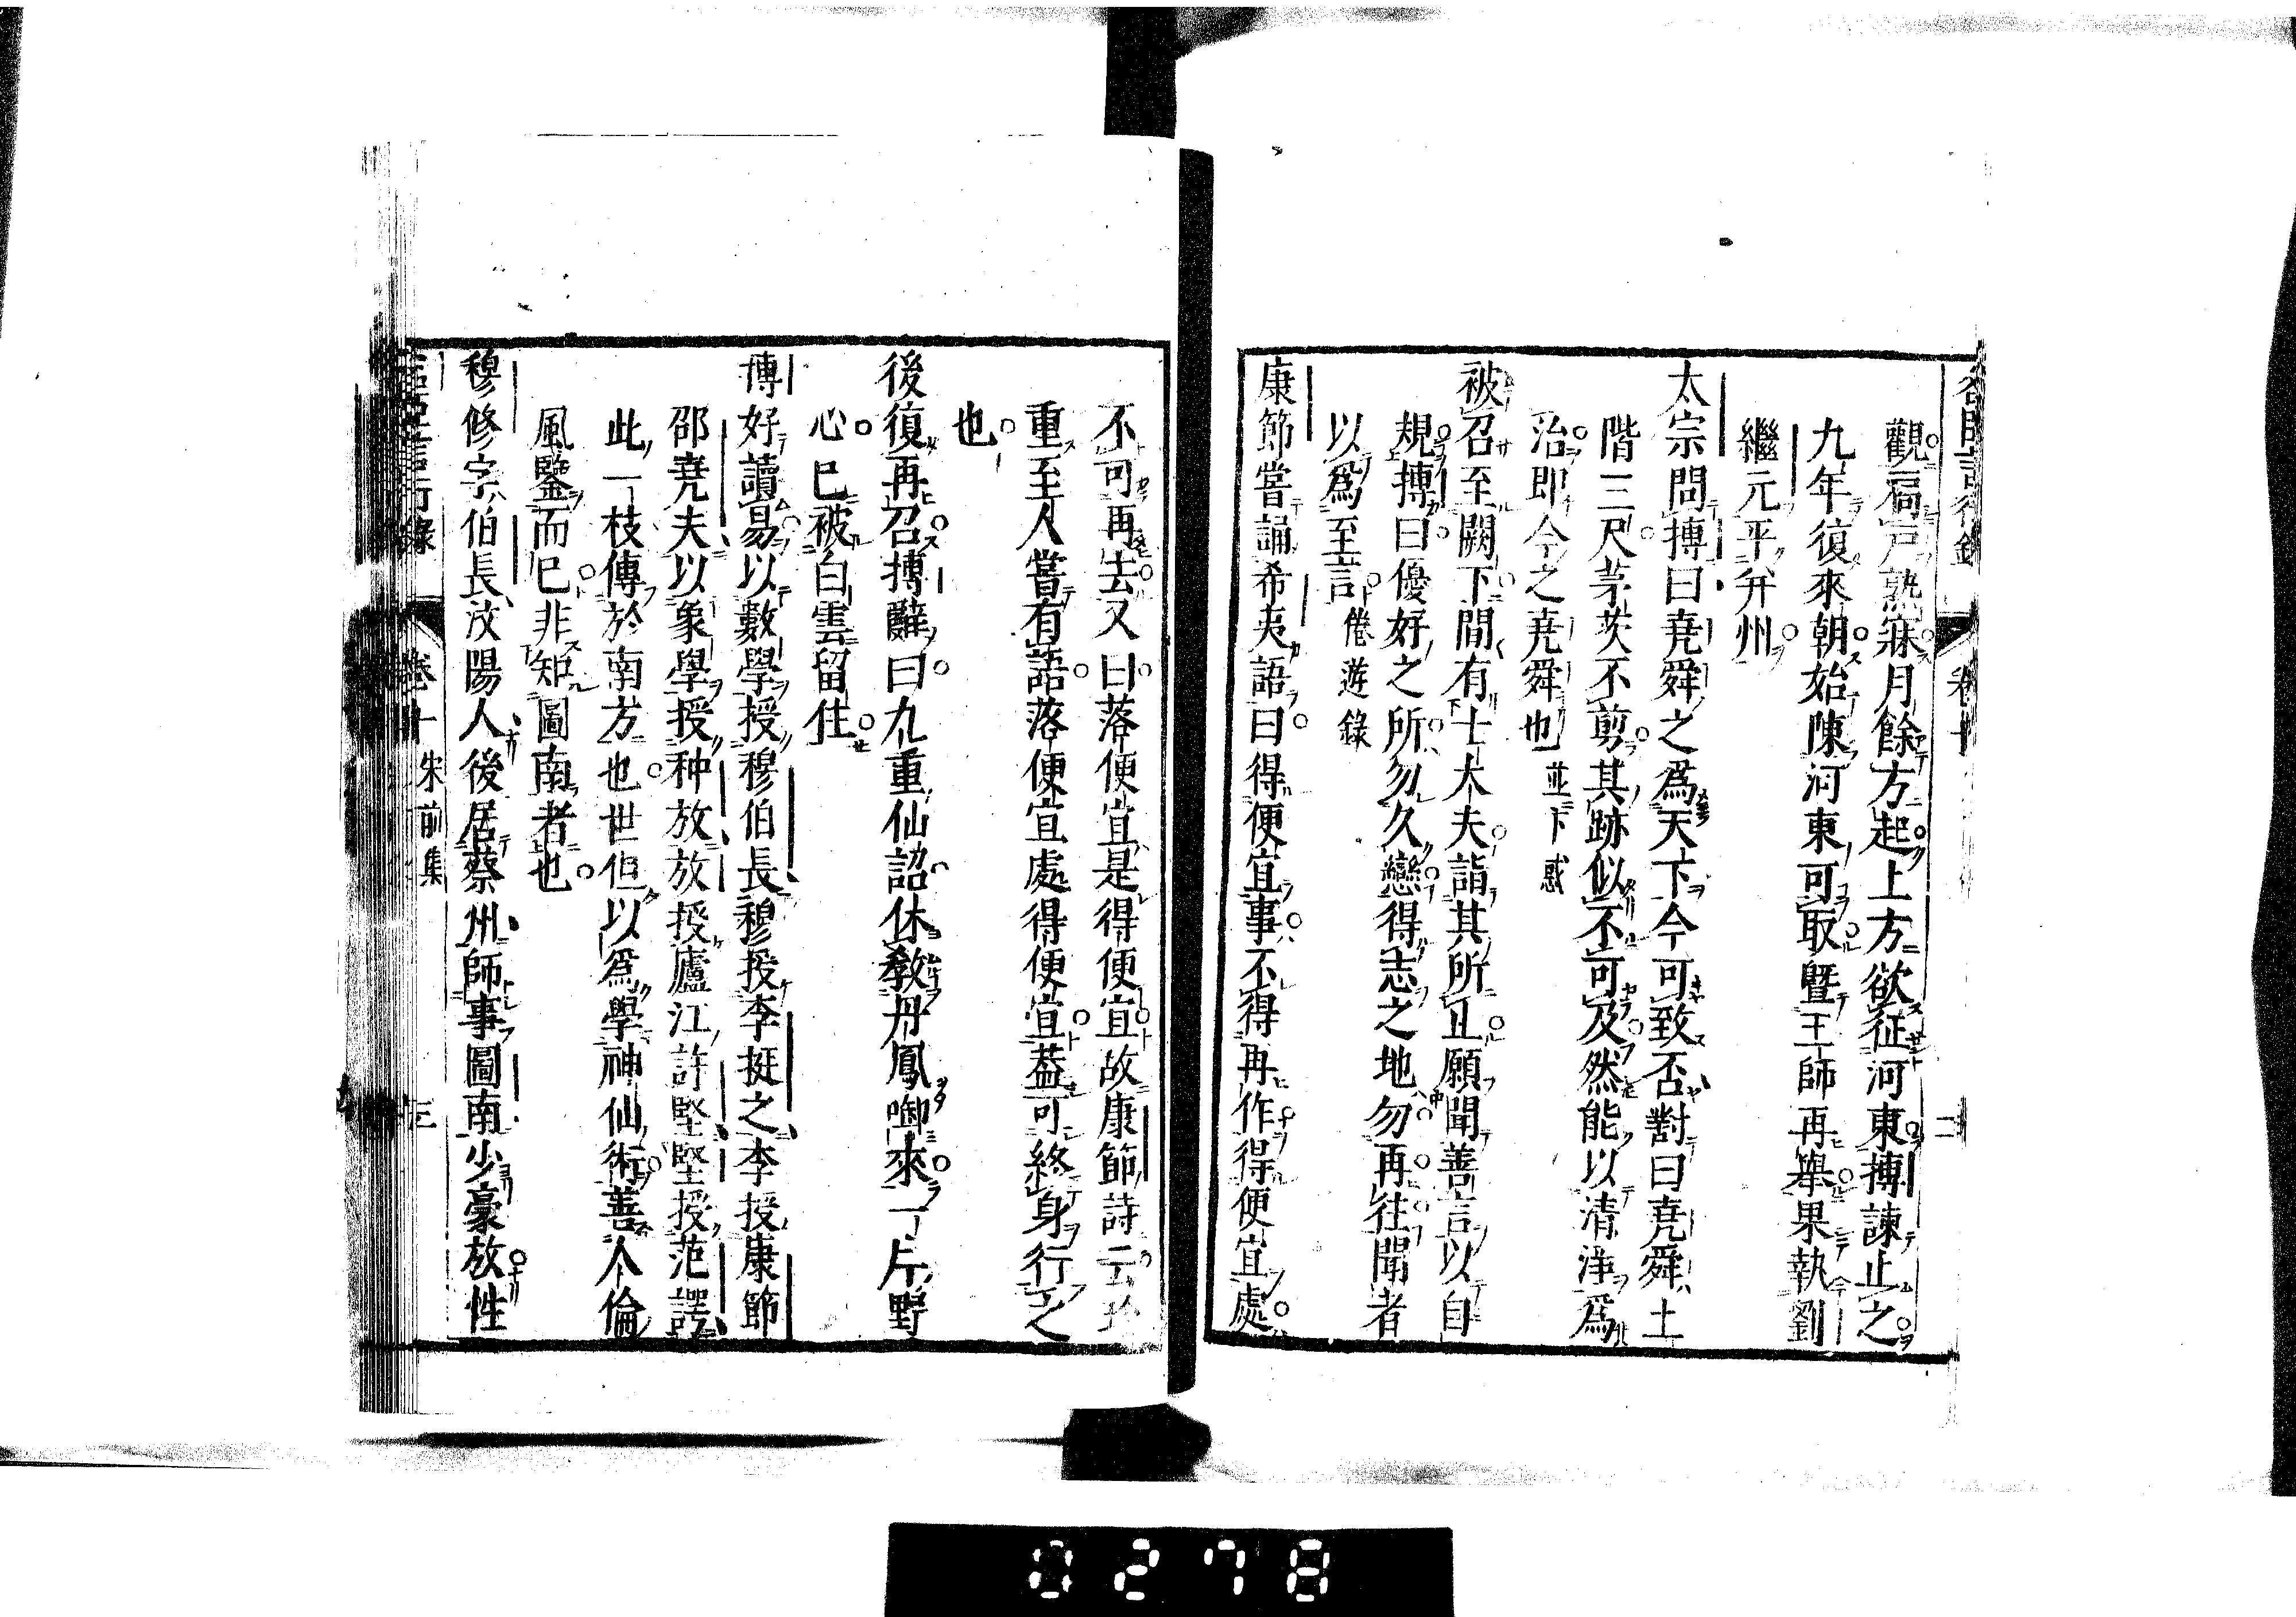 名臣言行録 卷十 二
觀扃戸熟寐月餘方起上方欲征河東摶諫止之
九年復來朝始陳河東可取曁王師再舉果執劉
繼元平幷州
太宗問摶曰堯舜之爲天下今可致否對曰堯舜土
階三尺茅茨不剪其跡似不可及然能以清淨爲
治即今之堯舜也 並下惑
被召至闕下間有士大夫詣其所止願聞善言以自
規摶曰優好之所勿久戀得志之地勿再往聞者
以爲至言 倦遊錄
康節嘗誦希夷語曰得便宜事不得再作得便宜處
不可再去又曰落便宜是得便宜故康節詩云珍
重至人嘗有語落便宜處得便宜蓋可終身行之
也
後復再召摶辭曰九重仙詔休教丹鳳啣來一片野
心已被白雲留住
摶好讀易以數學授穆伯長穆授李挺之李授康節
邵堯夫以象學授种放放授廬江許堅堅授范諤
此一枝傳於南方也世但以爲學神仙術善人倫
風鑒而已非知圖南者也
穆修字伯長汶陽人後居蔡州師事圖南少豪放性
言行錄 卷十 宋前集 三
0278